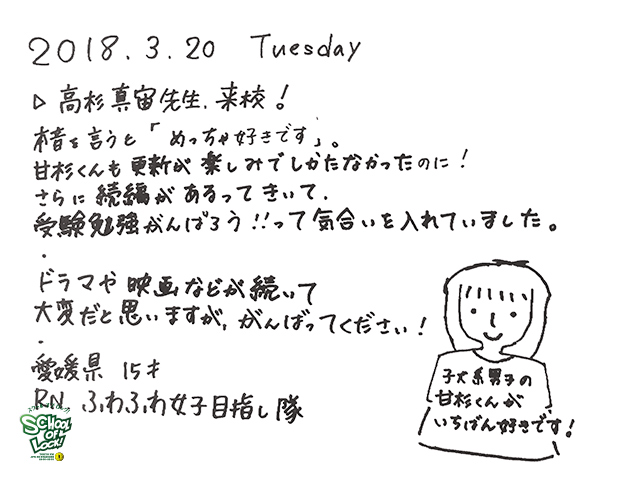 2018.3.20 Tuesday
▷ 高杉真宙先生、来校!
本音を言うと「めっちゃ好きです」。
甘杉くんも更新が楽しみでしかたなかったのに!
さらに続編があるってきいて、
受験勉強がんばろう!!って気合いを入れていました。
・
ドラマや映画などが続いて
大変だと思いますが、がんばってください!
・
愛媛県 15才
RN ふわふわ女子目指し隊
子犬系男子の
甘杉くんが
いちばん好きです!
SCHOOL
OF
LOCK!